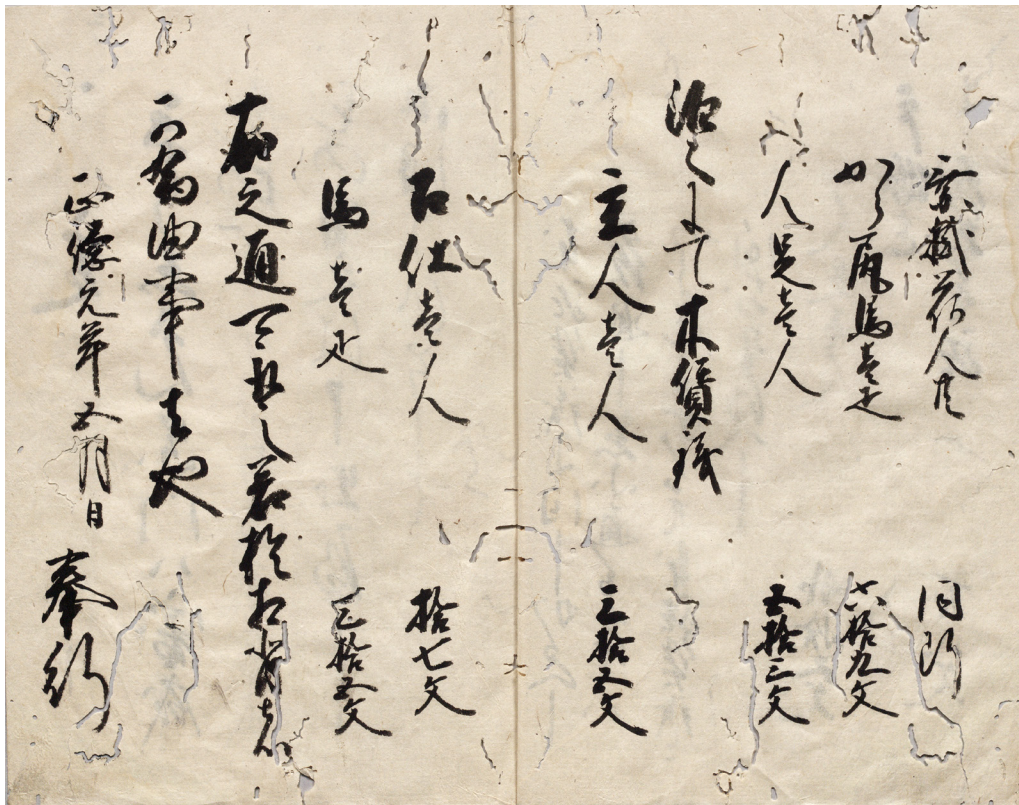 乗掛荷人共 同断
から尻馬壱疋 六拾九文
人足壱人 五拾三文
泊りにて木賃銭
主人壱人 三拾五文
召仕壱人 拾七文
馬壱疋 三拾五文
右之通可取之若於相背者
可為曲事者也
正徳元年五月日 奉行